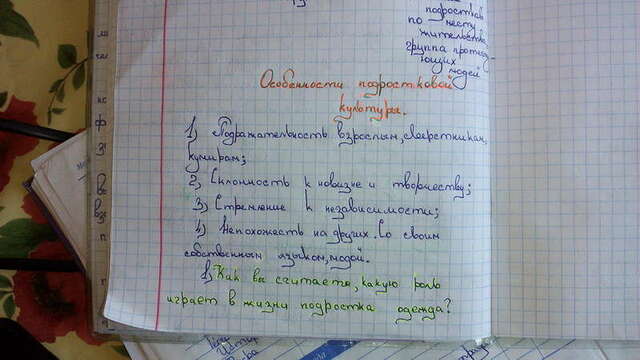 подростков
по месту
жительства
группа
ющих людей
Особенности подростковой
культуры.
1) Подражательность взрослым, сверстникам,
кумирам;
2) Склонность к новизне и творчеству;
3) Стремление к независимости;
4) Непохожесть на других. Со своим
собственным языком, модой.
1) Как вы считаете, какую роль
играет в жизни подростка одежда?